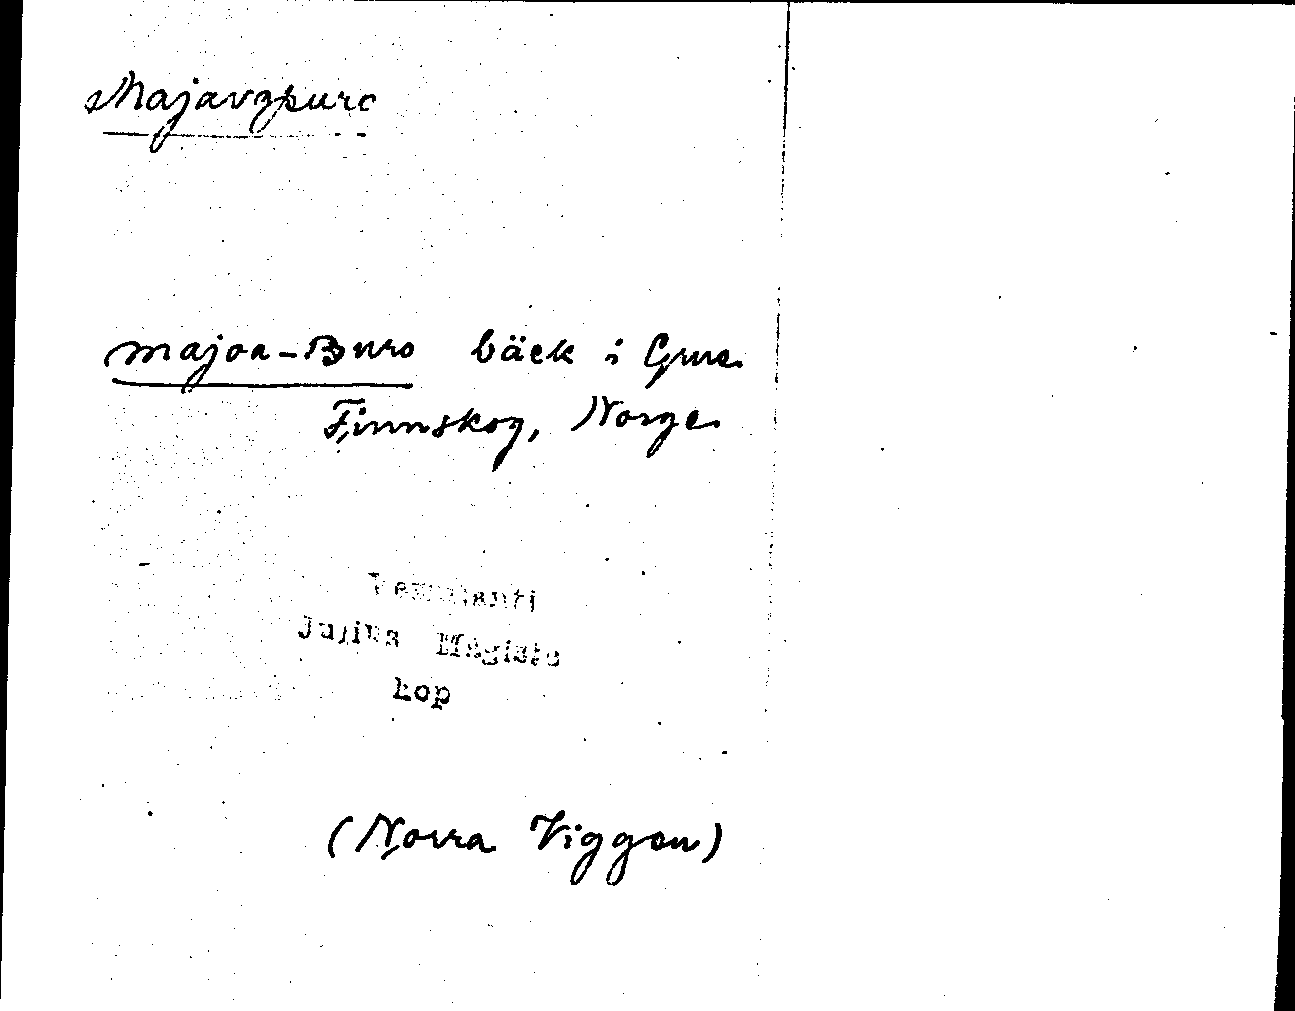 Majavapuro
majoa-Buro bäck i Grue
Finnskog, Norge.
Julius Mägiste
kop
(Norra Viggen)